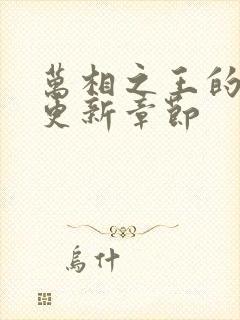 萬相之王的
更新章節
烏什